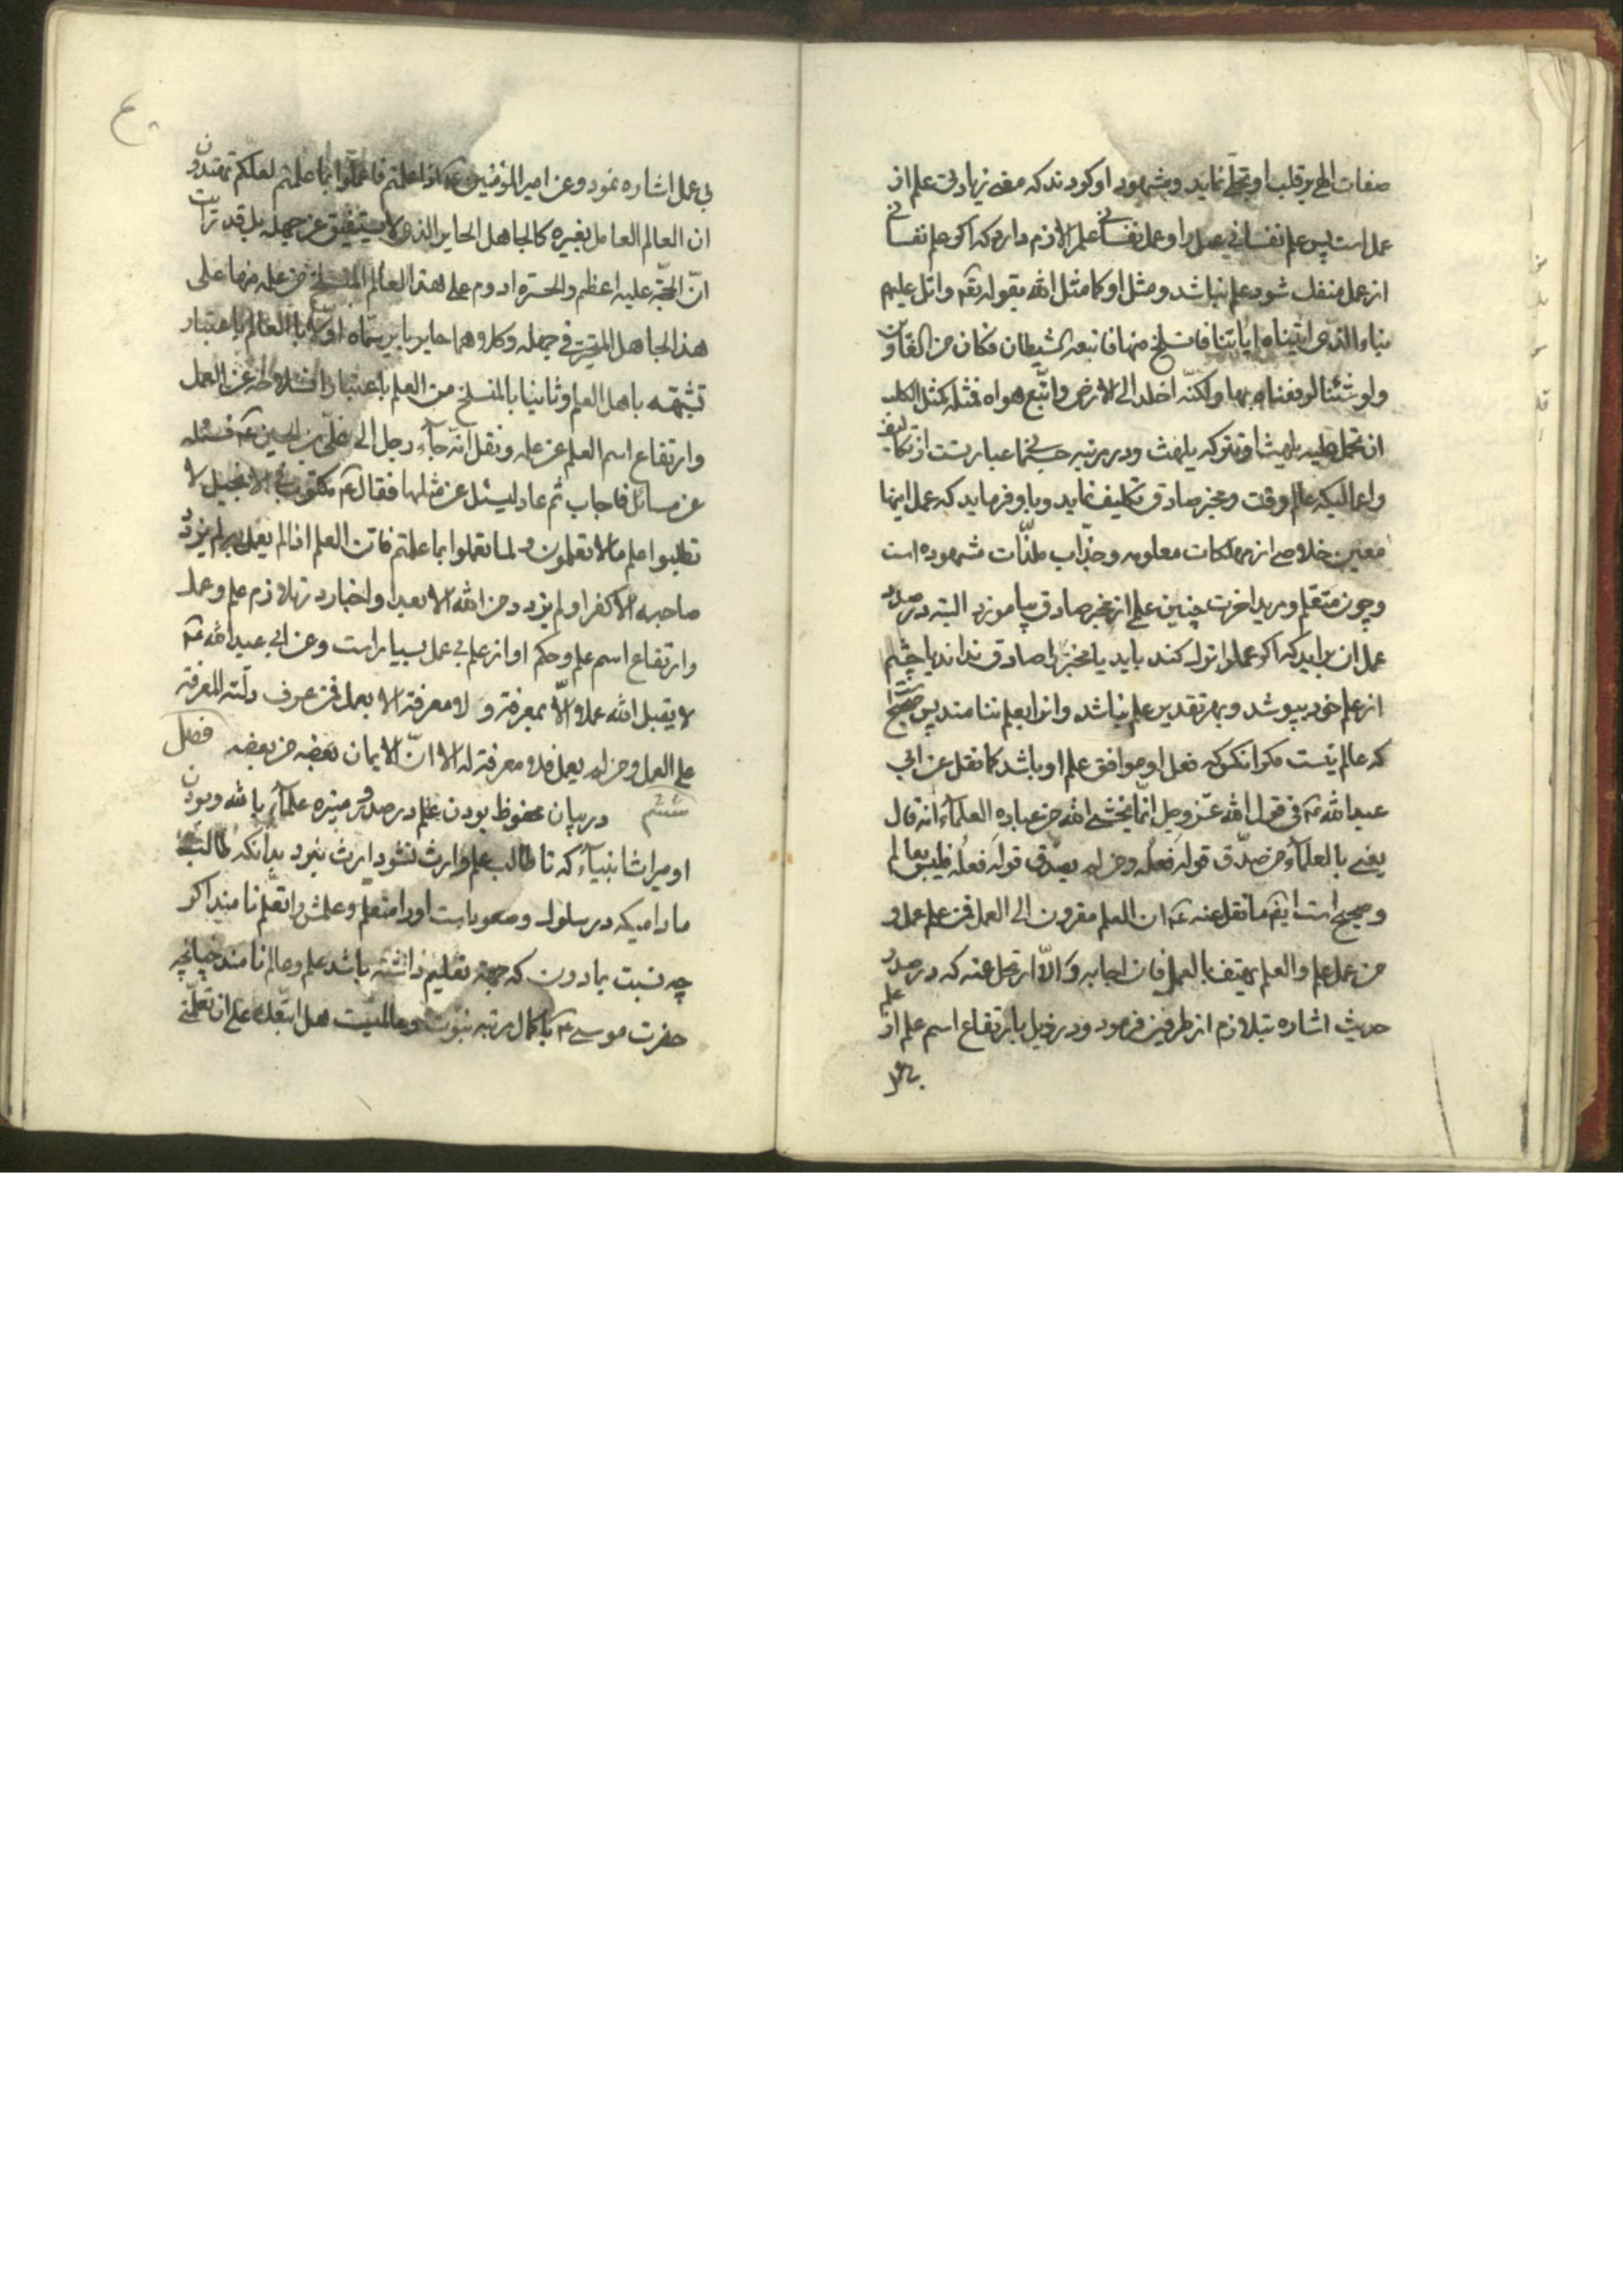 صفات الهی بر قلب او تجلی نماید و مشهود او کردند که معنی زیادتی علم از
عمل است پس علم نفسانی عمل را و عمل نفسانی علم را لازم دارد که اکر علم نفسانی
از عمل منفک شود علم نباشد و مثل او کما مثل الله بقوله تعم واتل علیهم
نباء الذی اتیناه ایاتنا فانسلخ منها فاتبعه الشیطان فکان من الغاوین
ولو شئنا لرفعناه بها ولکنه اخلد الی الارض واتبع هواه فمثله کمثل الکلب
ان تحمل علیه یلهث او تترکه یلهث و در مرتبه جسمانی عبارتست از تکالیف
واعمالیکه عالم وقت و مخبر صادق تکلیف نماید و باو فرماید که عمل اینها
معین خلاصی از مهلکات معلومه و جذاب ملذات مشهوده است
و چون متعلم و مرید اخرت چنین علم از مخبر صادق بیاموزد البته در صدد
عمل ان براید که اکر عمل را ترک کند باید یا مخبر را صادق نداند یا چشم
از علم خود بپوشد و بهر تقدیر علم نباشد و انرا بعلم ننامند پس صحیح است
که عالم نیست مکر انکس که فعل او موافق علم او باشد کما نقل عن ابی
عبد الله عم فی قول الله عز وجل انما یخشی الله من عباده العلماء انه قال
یعنی بالعلماء من صدق قوله فعله ومن لم یصدق قوله فعله فلیس بعالم
و صحیح است ایضم ما نقل عنه عم ان العلم مقرون الی العمل فمن علم عمل و
من عمل علم والعلم یهتف بالعمل فان اجابه والا ارتحل عنه که در صدر
حدیث اشاره بتلازم از طرفین فرمود و در ذیل بارتفاع اسم علم از علم
بی عمل
بی عمل اشاره نمود وعن امیر المؤمنین عم اذا علمتم فاعملوا بما علمتم لعلکم تهتدون
ان العالم العامل بغیره کالجاهل الحایر الذی لا یستفیق عن جهله بل قد رایت
ان الحجة علیه اعظم والحسرة ادوم علی هذا العالم المنسلخ من علمه منها علی
هذا الجاهل المتحیر فی جهله وکلاهما حایر بایر سماه اولا بالعالم باعتبار
تشبهه باهل العلم وثانیا بالمنسلخ من العلم باعتبار انسلاخه عن العمل
وارتفاع اسم العلم عن علمه ونقل انه جاء رجل الی علی بن الحسین عم فسئله
عن مسائل فاجاب ثم عاد لیسئل عن مثلها فقال عم مکتوب فی الانجیل لا
تطلبوا علم ما لا تعلمون ولما تعملوا بما علمتم فان العلم اذا لم یعمل به لم یزدد
صاحبه الا کفرا ولم یزدد من الله الا بعدا و اخبار در تلازم علم و عمل
و ارتفاع اسم علم و حکم او از علم بی عمل بسیار است وعن ابی عبد الله عم
لا یقبل الله عملا الا بمعرفة و لا معرفة الا بعمل فمن عرف دلته المعرفة
علی العمل ومن لم یعمل فلا معرفة له الا ان الایمان بعضه من بعضه فصل
ششم در بیان محفوظ بودن علم در صدور منیره علماء بالله و بودن
او میراث انبیاء که تا طالب علم وارث نشود ارث نبرد بدانکه طالب
مادامیکه در سلوک و صعود است او را متعلم و علمش را تعلم نامیند اکر
چه نسبت بمادون که جهة تعلیم داشته باشد علم و عالم نامند چنانچه
حضرت موسی عم با کمال مرتبه نبوت و عالمیت هل اتبعک علی ان تعلمنی